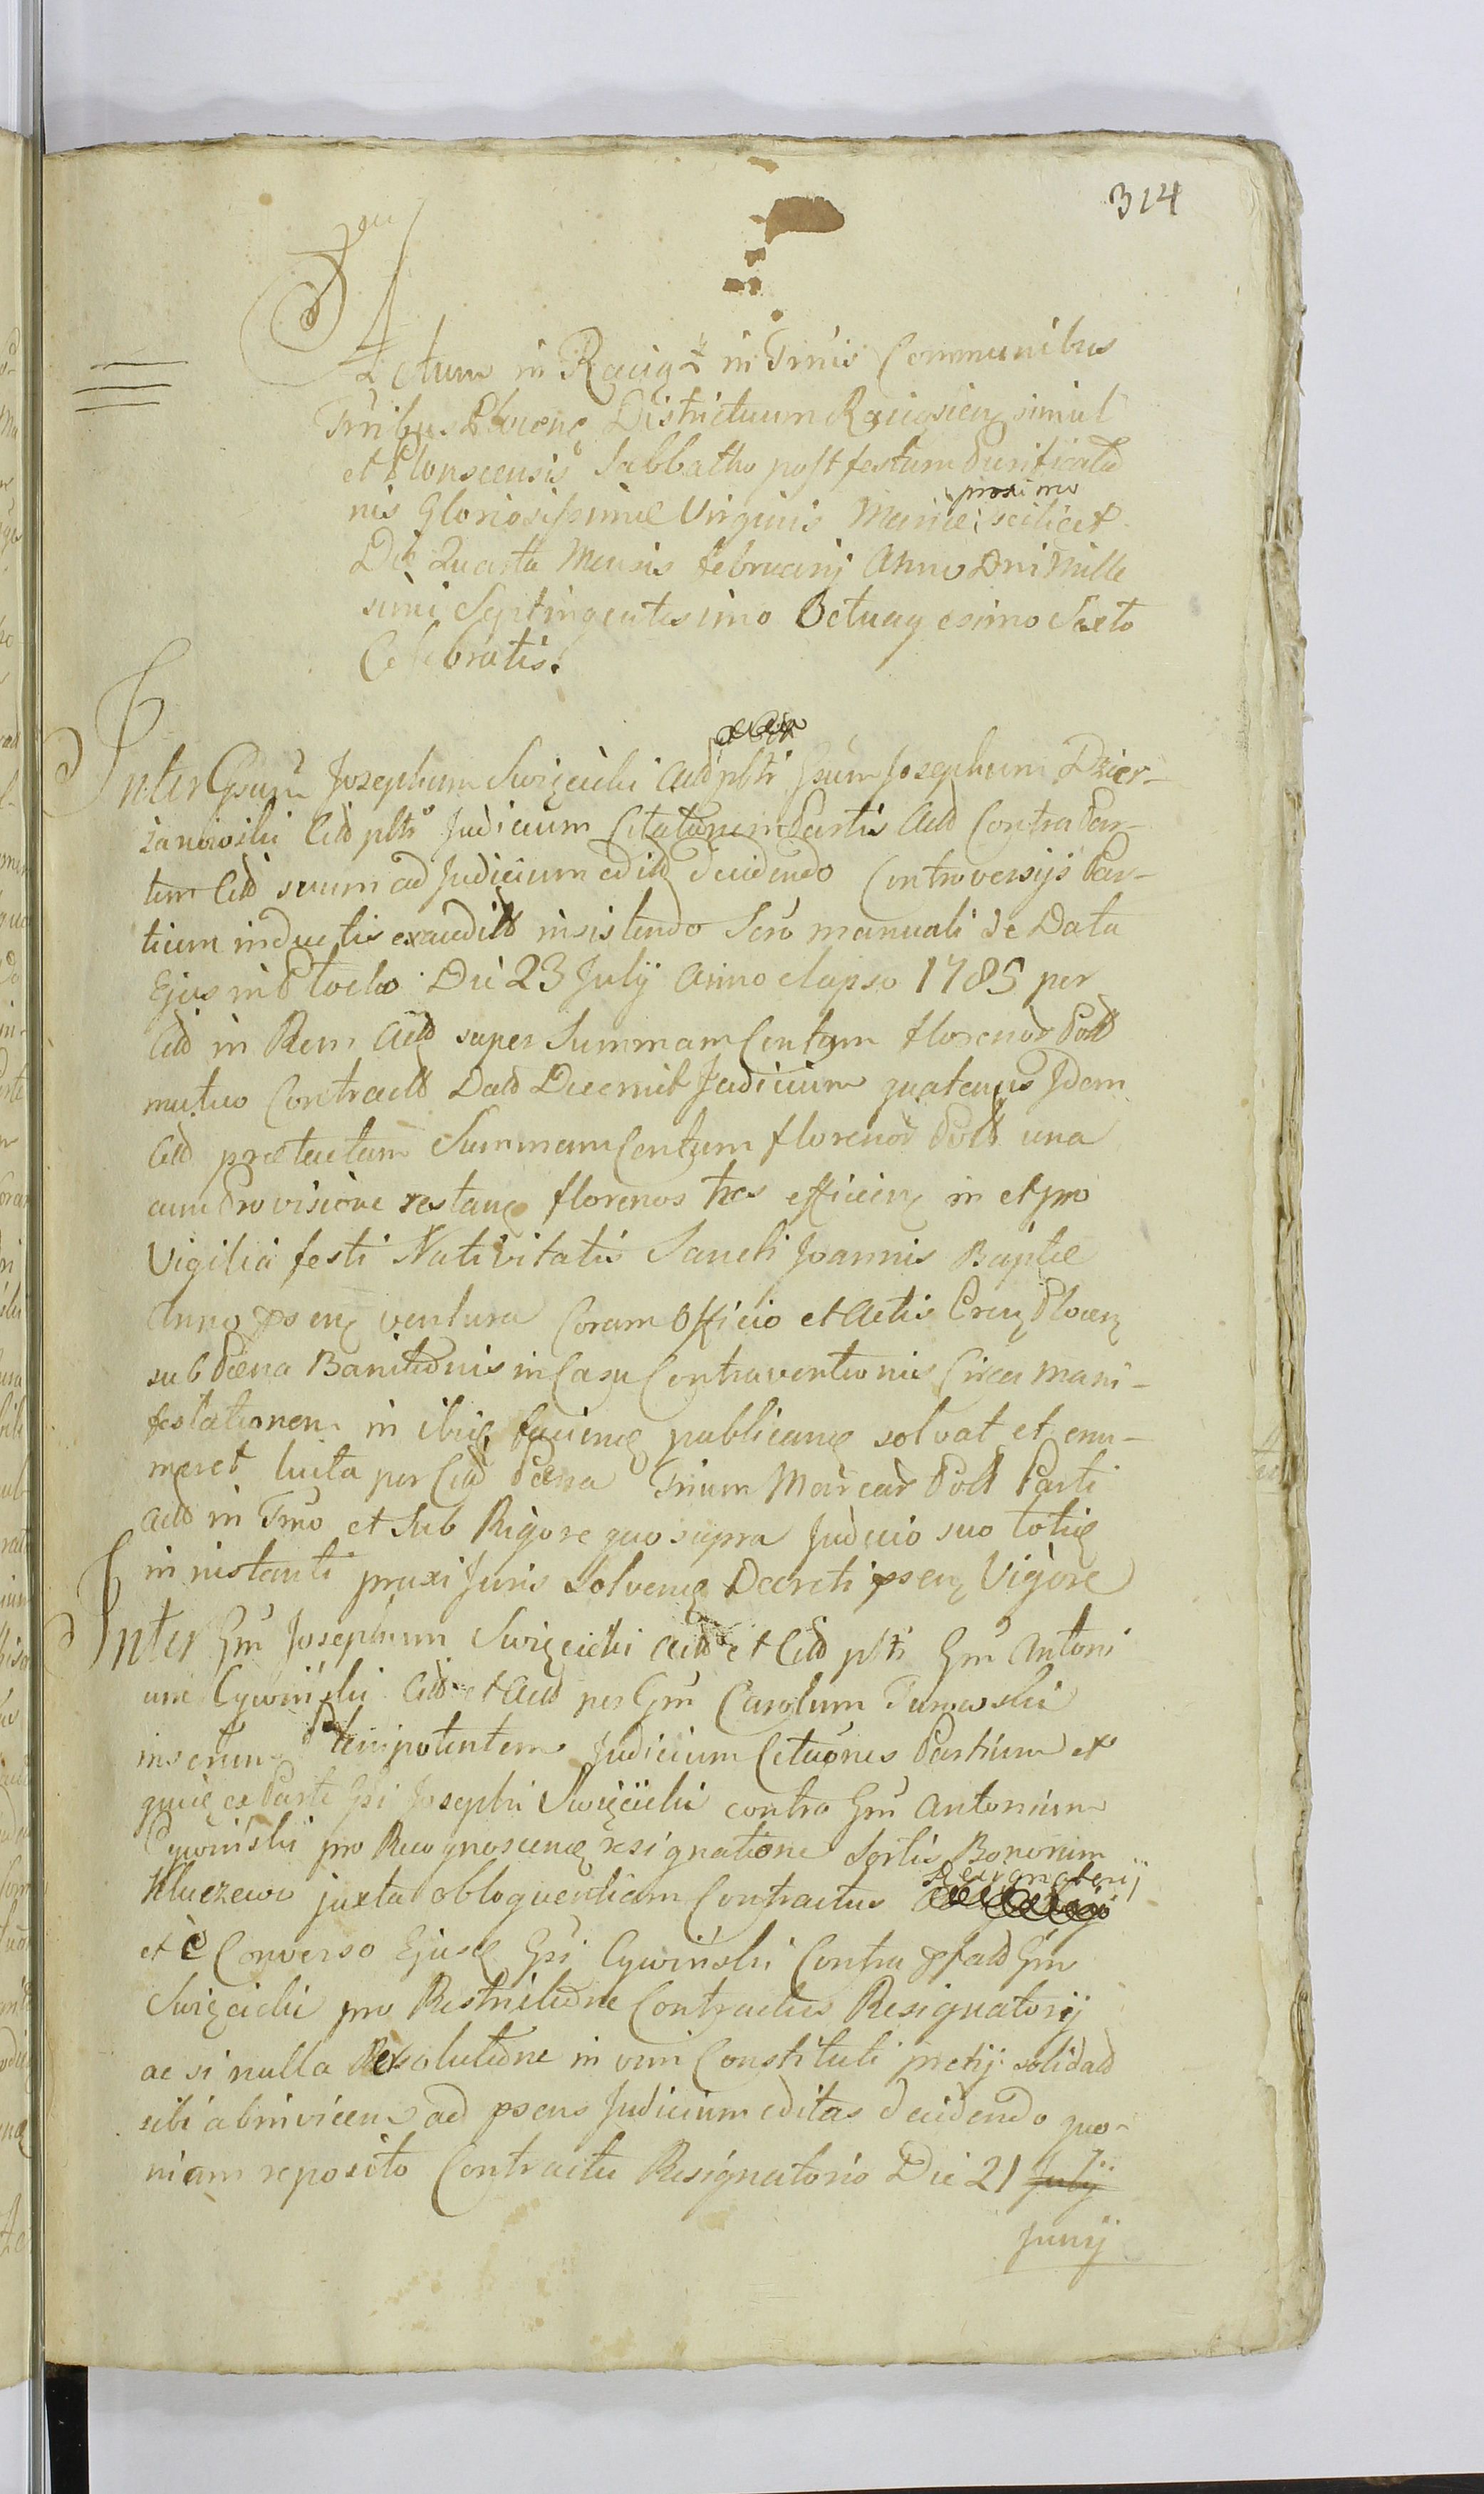 314
Actum in Raciąż in Tmis Communibus
Trribus Plocens Districtuum Raciąsiens simul
et Plonscensis Sabbatho post festum Purificatio
nis Gloriosissimæ Virginis Mariæ proximo scilicet
Die Quarta Mensis Februarij Anno Dni Mille
simo Septingentesimo Octuagesimo Sexto
Celebratis.
Inter Gsum Josephum Swięcicki Actd pltr Gsum Josephum Dzier-
żanowski Citd pltr Judicium Citationem Partis Actd Contra Par-
tem Citd suum ad Judicium edittd decidendo Controversijs Par-
tium inductis exaudittd insistendo Scro manuali de Data
Ejus in Plocko Die 23 July Anno elapso 1785 per
Citd in Rem Actd super Summam Centum florenor Poltd
mutuo Contractd Datd Decernit Judicium quatenus Idem
Citd prætactam Summam Centum florenor Poltd una
cum Provisione restanc florenos tres efficien in et pro
Vigilia festi Nativitatis Sancti Joannis Baptæ
Anno psen ventura Coram Officio et Actis Cren Plocen
sub Pæna Banitionis in Casu Contraventionis Circa mani-
festationem in ibid faciend publicand solvat et enu-
meret luita per Citd Pæna Trium Marcar Poltd Parti
Actd in Tmo et Sub Rigore quo supra Judicio suo totid
in instanti praxi Juris Solvend Decreti psen Vigore
Inter Gm Josephum Swięcicki Actd et Citd pltr Gm Antoni
um Cywiński Citd et Actd per Gm Carolum Turowski
inserun Plenipotentem Judicium Citaones Partium et
quid ex Parte Gsi Josephi Swięcicki contra Gm Antonium
Cywiński pro Recognoscend resignatione Sortis Bonorum
Kluczewo juxta obloquentiam Contractus Resignatorij
et è Converso Ejusd Gsi Cywiński Contra pfatd Gm
Swięcicki pro Restrictione Contractus Resignatorij
ac si nulla Resolutione in vim Constituti pretij solidatd
sibi ab invicem ad psens Judicium editas decidendo quo-
niam reposito Contractu Resignatorio Die 21 July
Junij